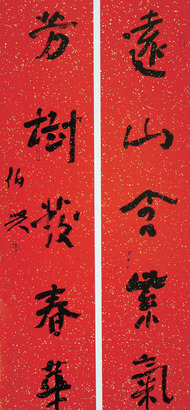 遠山含紫氣
芳樹發春華
伯炎